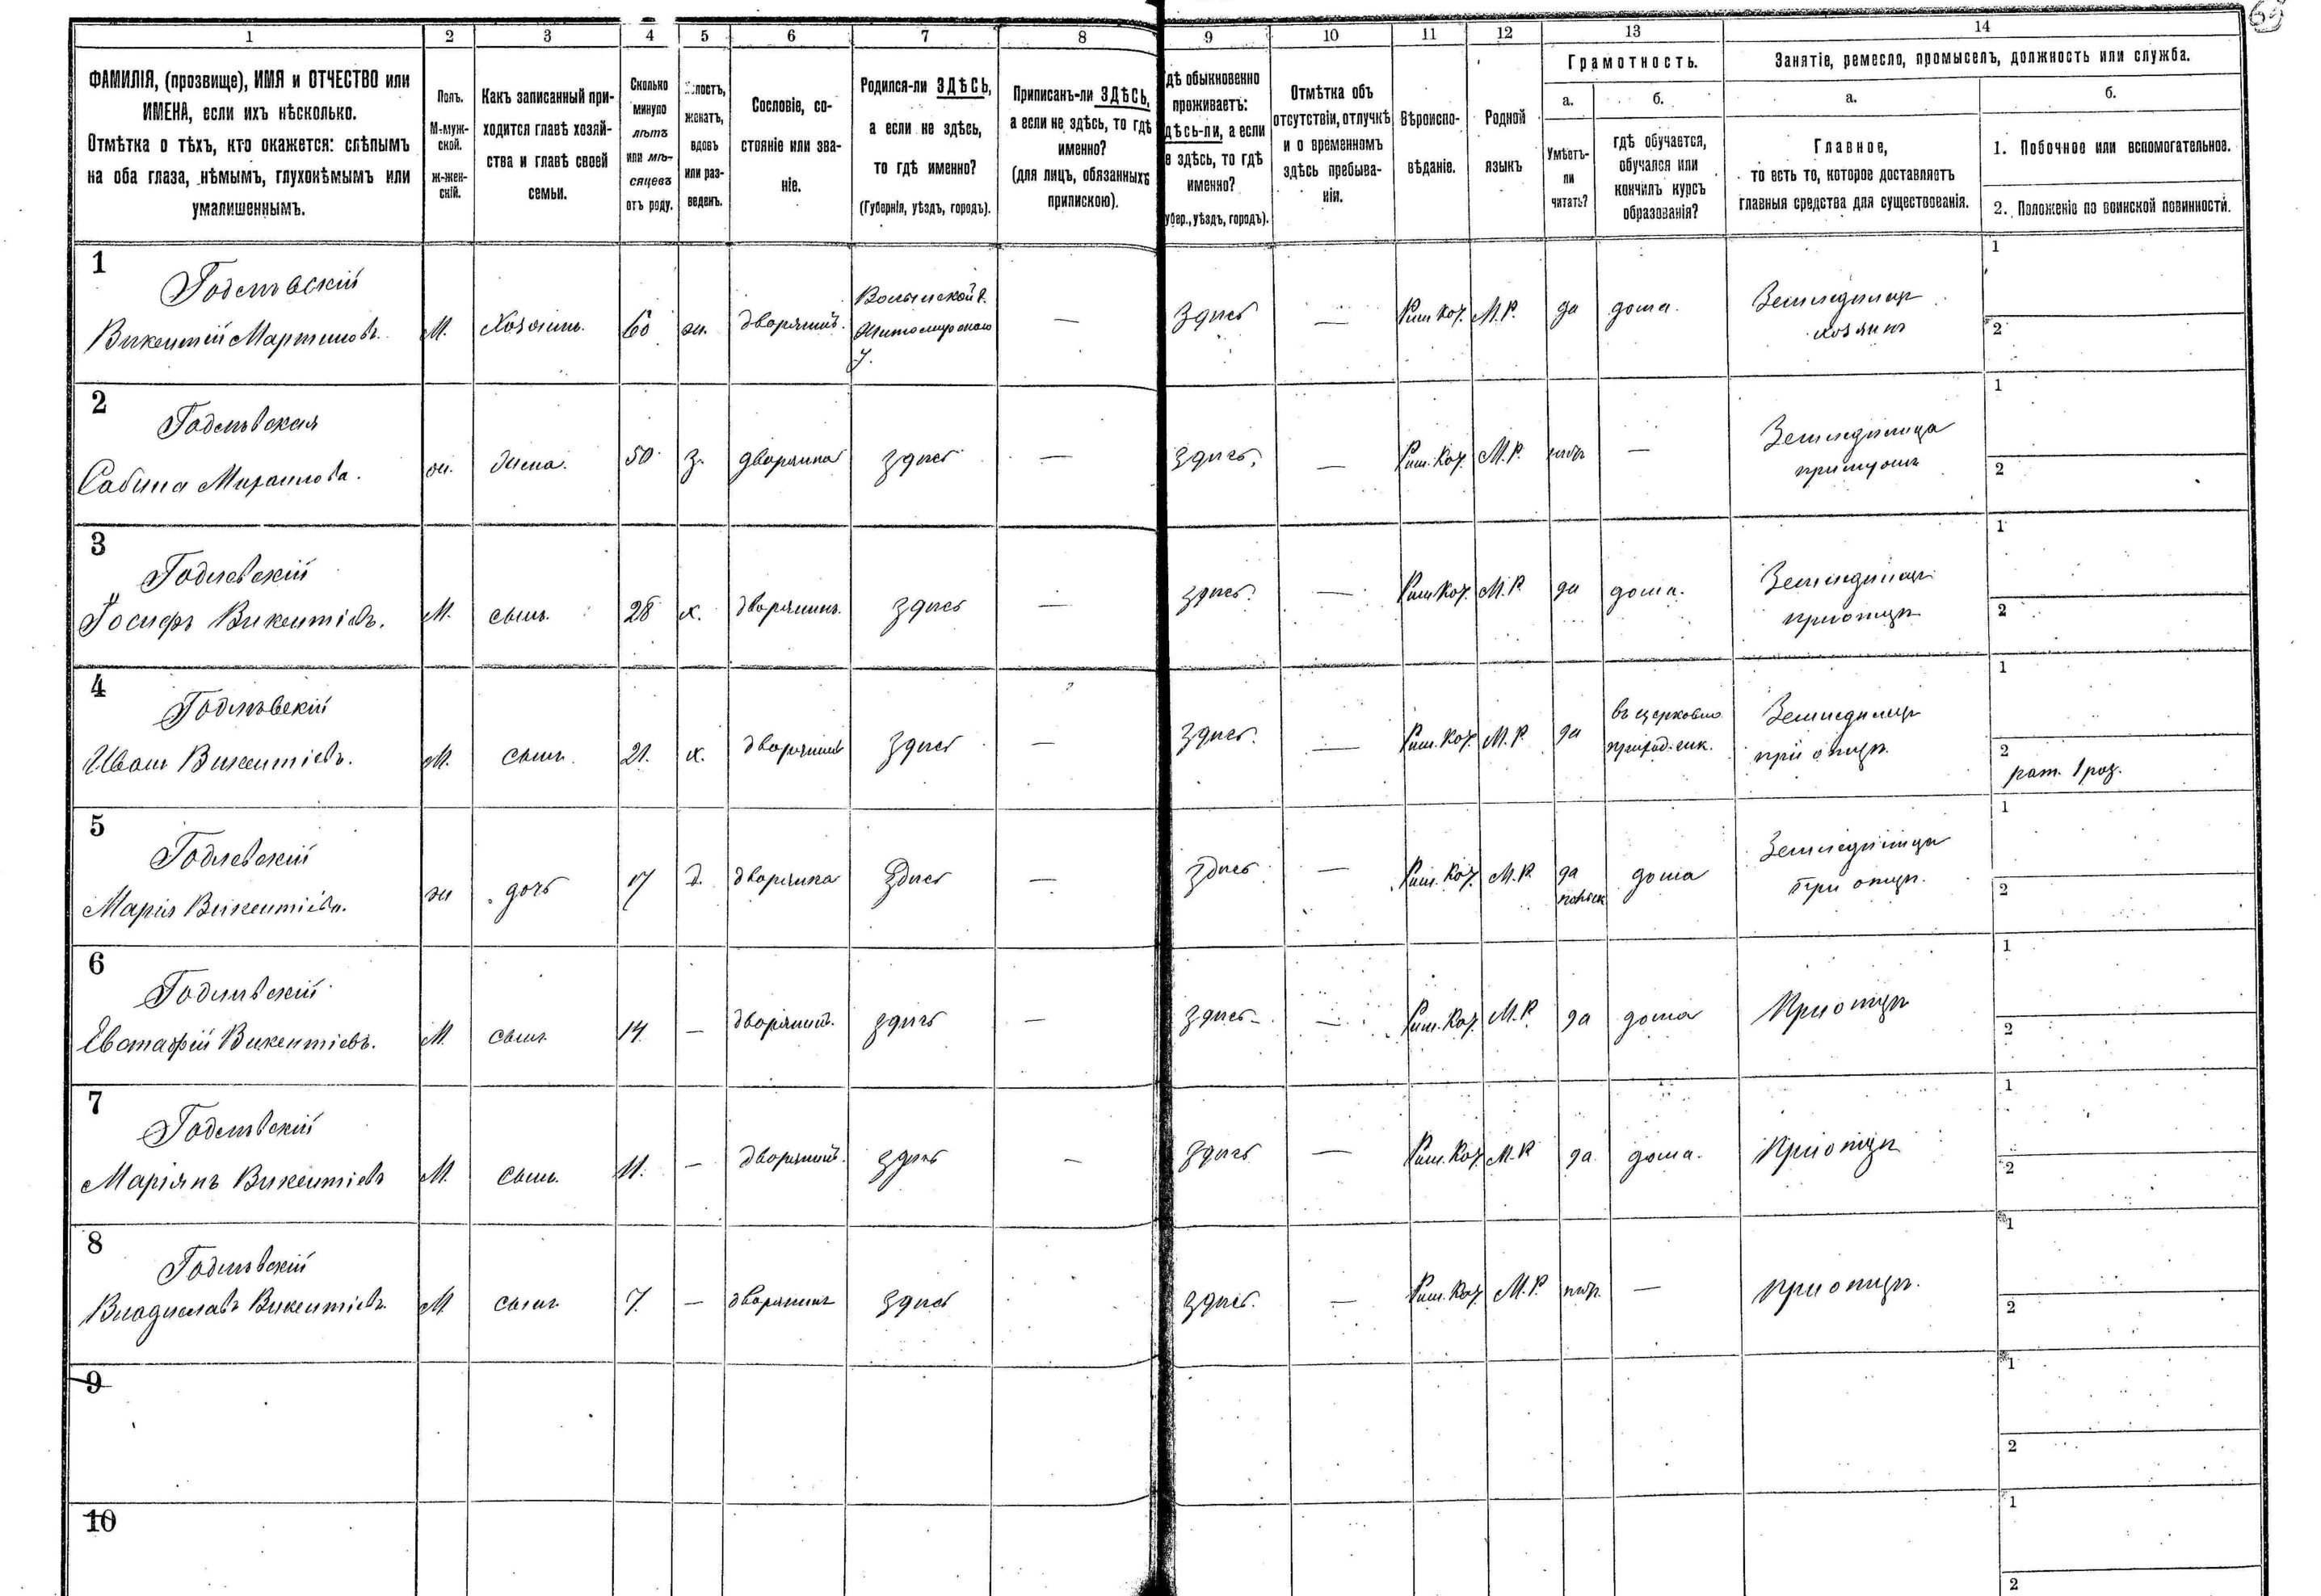 69
1 2 3 4 5 6 7 8 9 10 11 12 13 14
ФАМИЛІЯ, (прозвище), ИМЯ и ОТЧЕСТВО или
ИМЕНА, если ихъ нѣсколько.
Отмѣтка о тѣхъ, кто окажется: слѣпымъ
на оба глаза, нѣмымъ, глухонѣмымъ или
умалишеннымъ.
Полъ.
М-муж-
ской.
Ж-жен-
скій.
Какъ записанный при-
ходится главѣ хозяй-
ства и главѣ своей
семьи.
Сколько
минуло
лѣтъ
или мѣ-
сяцевъ
отъ роду.
лостъ,
женатъ,
вдовъ
или раз-
веденъ.
Сословіе, со-
стояніе или зва-
ніе.
Родился-ли ЗДѢСЬ,
а если не здѣсь,
то гдѣ именно?
(Губернія, уѣздъ, городъ).
Приписанъ-ли ЗДѢСЬ,
а если не здѣсь, то гдѣ
именно?
(для лицъ, обязанныхъ
припискою).
дѣ обыкновенно
проживаетъ:
дѣсь-ли, а если
е здѣсь, то гдѣ
именно?
убер., уѣздъ, городъ).
Отмѣтка объ
отсутствіи, отлучкѣ
и о временномъ
здѣсь пребыва-
ніи.
Вѣроиспо-
вѣданіе.
Родной
языкъ
Грамотность.
а.
Умѣетъ-
ли
читать?
б.
гдѣ обучается,
обучался или
кончилъ курсъ
образованія?
Занятіе, ремесло, промыселъ, должность или служба.
а.
Главное,
то есть то, которое доставляетъ
главныя средства для существованія.
б.
1. Побочное или вспомогательное.
2. Положеніе по воинской повинности.
1
Годлѣвскій
Викентій Мартиновъ.
М. Хозяинъ. 60 ж. дворянинъ.
Волынской г.
Житомирскаго
у.
— здѣсь — Рим. Кат. М. Р. да дома.
Земледѣлецъ
хозяинъ
1
2
2
Годлѣвская
Сабина Михаилова.
ж. жена. 50 з. дворянка здѣсь — здѣсь. — Рим. Кат. М. Р. нѣтъ —
Земледѣлица
при мужѣ
1
2
3
Годлевскій
Іосифъ Викентіевъ.
М. сынъ. 28 х. дворянинъ. здѣсь — здѣсь. — Рим. Кат. М. Р. да дома.
Земледѣлецъ
при отцѣ
1
2
4
Годлѣвскій
Иванъ Викентіевъ.
М. сынъ. 21. х. дворянинъ здѣсь — здѣсь. — Рим. Кат. М. Р. да
въ церковно
Земледѣлецъ
при отцѣ.
1
2
рат. 1 раз.
5
Годлевскій
Марія Викентіева.
ж дочь 17 д. дворянка здѣсь — здѣсь — Рим. Кат. М. Р. да
дома
Земледѣлица
при отцѣ.
1
2
6
Годлѣвскій
Евстафій Викентіевъ.
М. сынъ 14. — дворянинъ. здѣсь — здѣсь — Рим. Кат. М. Р. да дома При отцѣ
1
2
7
Годлѣвскій
Маріянъ Викентіевъ
М. сынъ. 11. — дворянинъ. здѣсь — здѣсь — Рим. Кат. М. Р да дома. При отцѣ
1
2
8
Годлѣвскій
Владиславъ Викентіевъ.
М сынъ 7. — дворянинъ здѣсь здѣсь. — Рим. Кат. М. Р. нѣтъ. — при отцѣ.
1
2
9
1
2
10
1
2